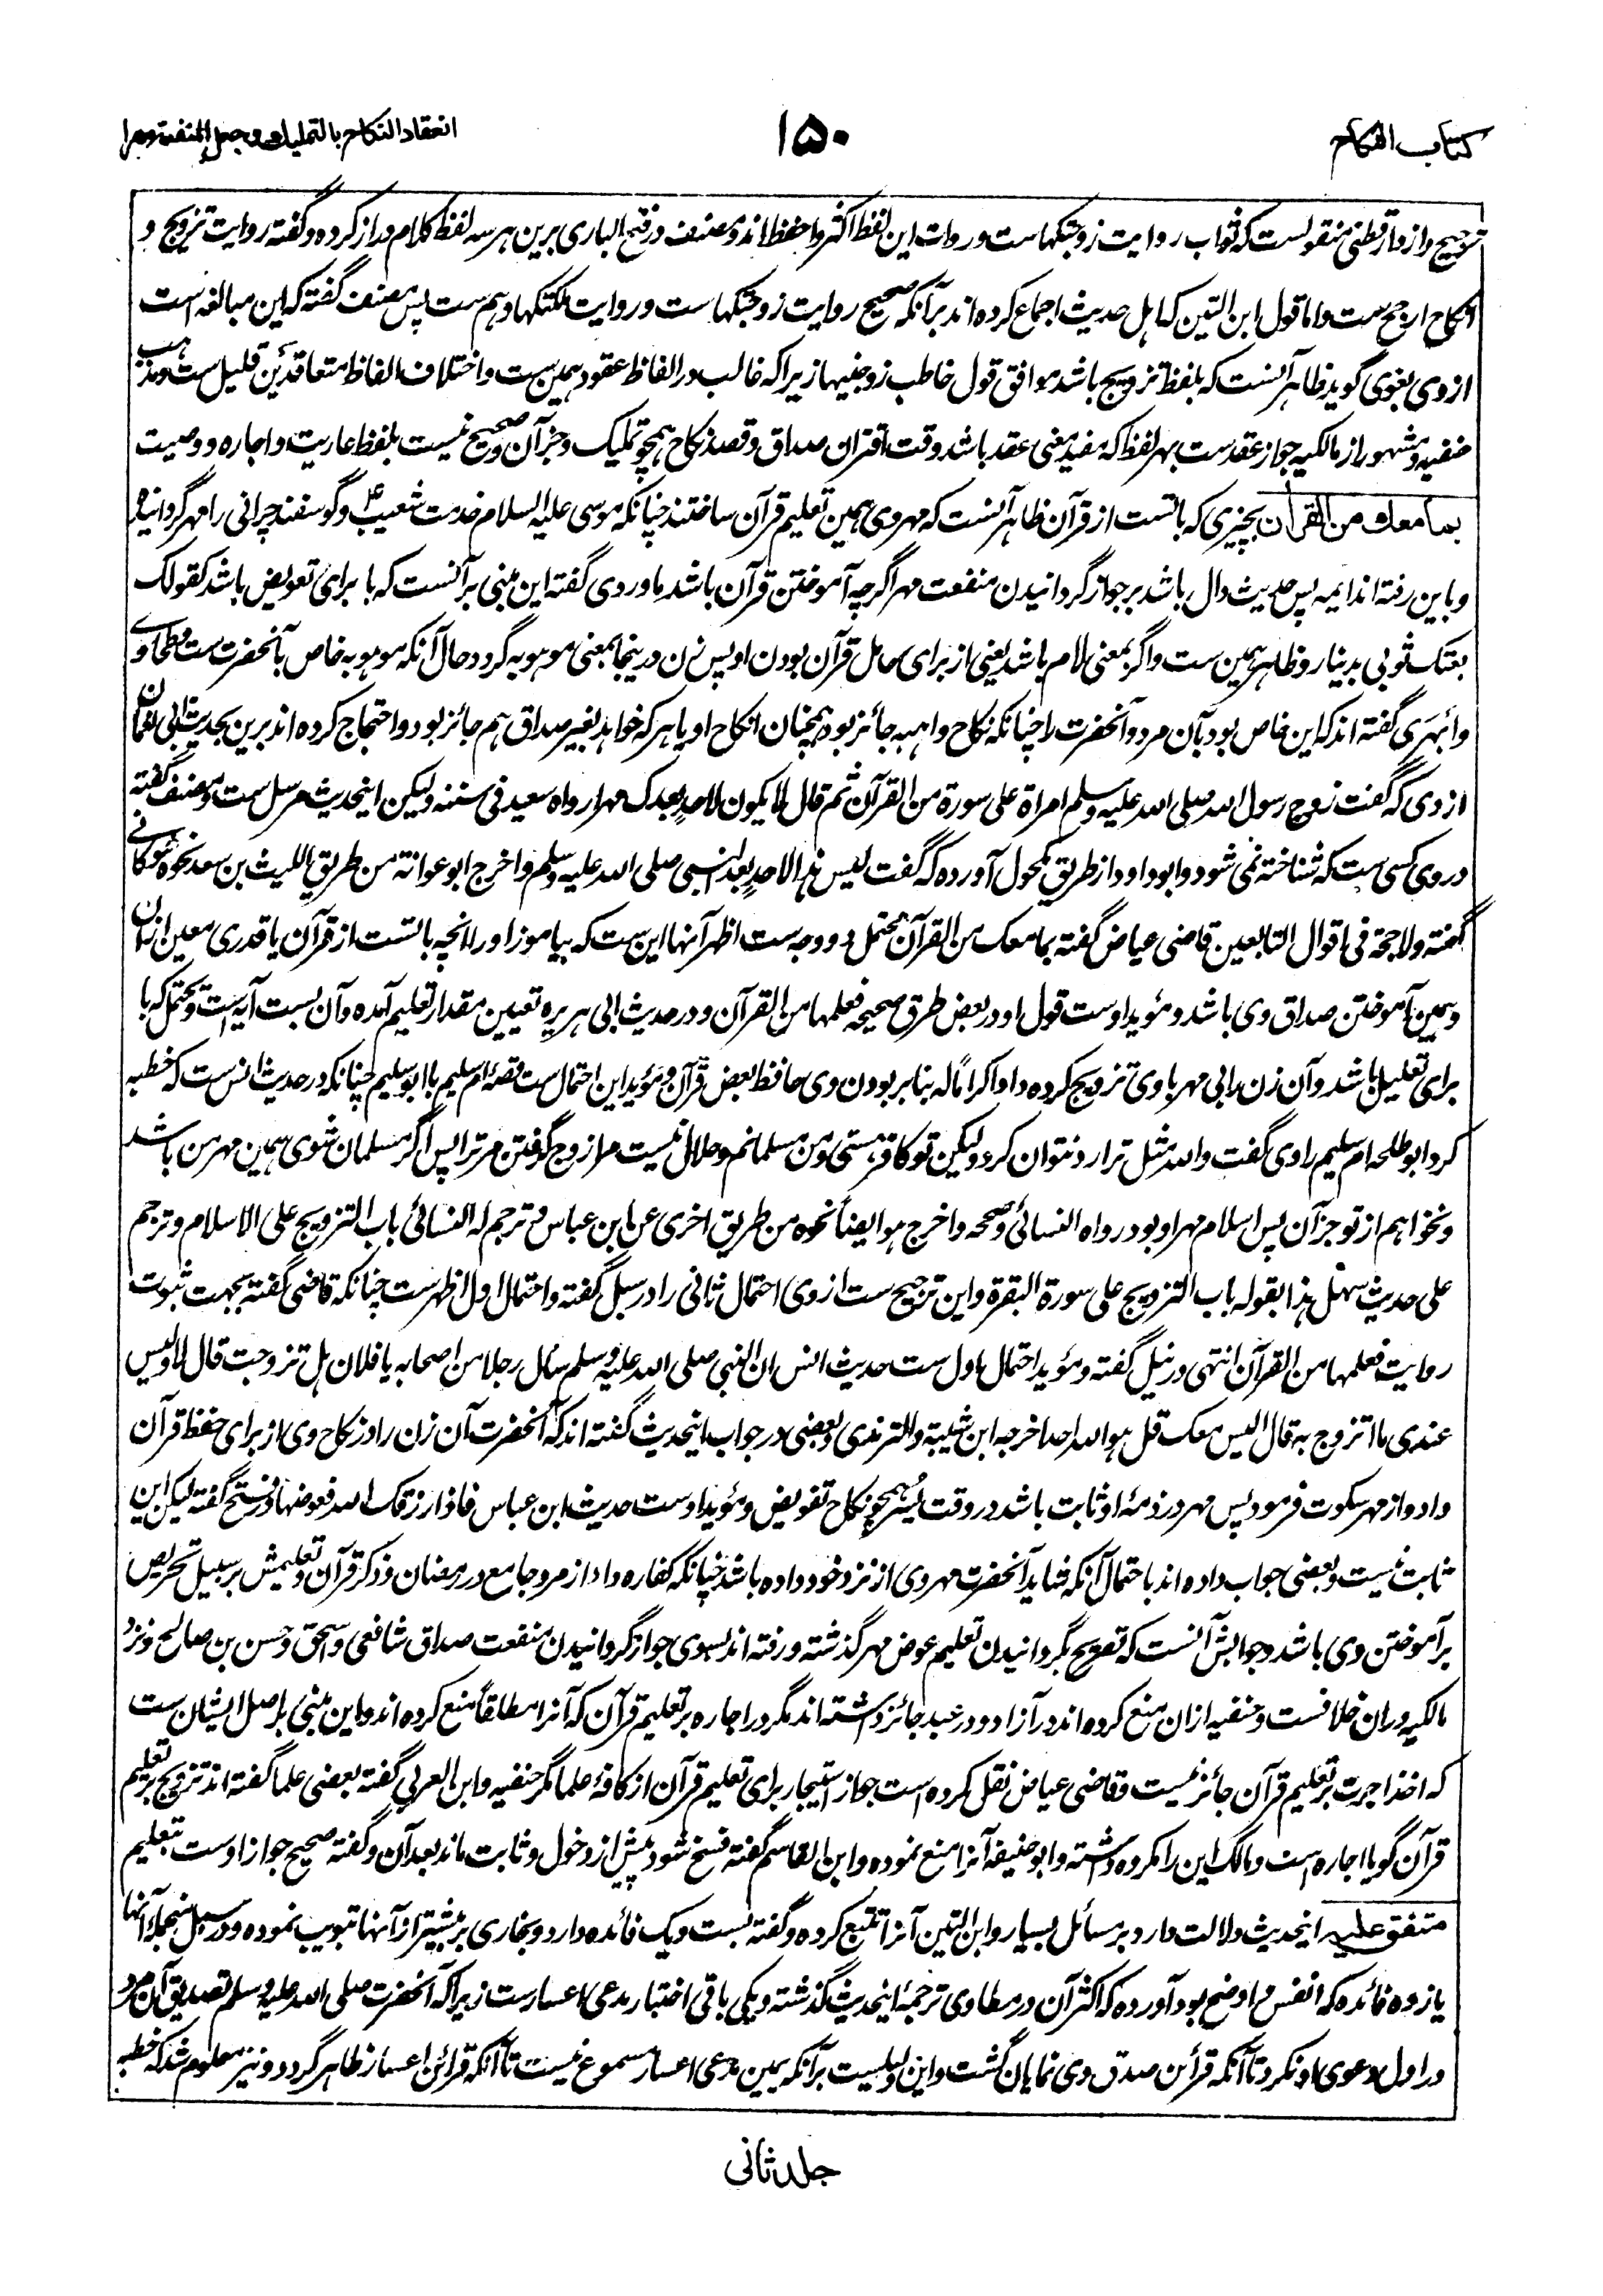 کتاب النکاح
۱۵۰
انعقاد النکاح بالتملیک وجعل المنفعة مهرا
ترجیح واز دارقطنی منقولست که صواب روایت زوجتکها ست وروات این لفظ اکثر واحفظ اند ومصنف در فتح الباری برین هرسه لفظ کلام دراز کرده وگفته روایت تزویج و
انکاح ارجح ست واما قول ابن التین که اهل حدیث اجماع کرده اند برآنکه صحیح روایت زوجتکها ست وروایت ملکتکها وهم ست پس مصنف گفته که این مبالغه است
از وی بغوی گوید ظاهر آنست که بلفظ تزویج باشد موافق قول خاطب زوجنیها زیراکه غالب در الفاظ عقود همین ست واختلاف الفاظ متعاقدین قلیل ست ومذهب
حنفیه ومشهور از مالکیه جواز عقدست بهر لفظ که مفید معنی عقد باشد وقت اقتران صداق وقصد نکاح همچو تملیک وجز آن وصحیح نیست بلفظ عاریت واجاره ووصیت
بما معك من القرآن بچیزی که باتست از قرآن ظاهر آنست که مهر وی همین تعلیم قرآن ساختند چنانکه موسی علیه السلام خدمت شعیب ع وگوسفند چرانی را مهر گردانیده
وباین رفته اند ایمه پس حدیث دال باشد بر جواز گردانیدن منفعت مهر اگرچه آموختن قرآن باشد ماوردی گفته این مبنی برآنست که با برای تعویض باشد کقولک
بعتک ثوبی بدینار وظاهر همین ست واگر بمعنی لام باشد یعنی از برای حامل قرآن بودن او پس زن درینجا بمعنی موهوبه گردد حال آنکه موهوبه خاص بآنحضرت ست وطحاوی
وأبهری گفته اند که این خاص بود بآن مرد وآنحضرت را چنانکه نکاح واهبه جائز بود همچنان انکاح او با هرکه خواهد بغیر صداق هم جائز بود واحتجاج کرده اند برین بحدیث ابی النعمان
ازدی که گفت زوج رسول الله صلی الله علیه وسلم امرأة علی سورة من القرآن ثم قال لا یکون لاحد بعدک مهرا رواه سعید فی سننه ولیکن اینحدیث مرسل ست ومصنف گفته
در وی کسی ست که شناخته نمی شود وابوداود از طریق مکحول آورده که گفت لیس هذا لاحد بعد النبی صلی الله علیه وسلم واخرج ابو عوانة من طریق اللیث بن سعد نحوه شوکانی
گفته ولا حجة فی اقوال التابعین قاضی عیاض گفته بما معک من القرآن محتمل دو وجه ست اظهر آنها این ست که بیاموز او را آنچه باتست از قرآن یا قدری معین ازان
وهمین آموختن صداق وی باشد ومؤید اوست قول او در بعض طرق صحیحه فعلمها من القرآن ودر حدیث ابی هریره تعیین مقدار تعلیم آمده وآن بست آیه است ومحتمل که با
برای تعلیل باشد وآن زن را بی مهر باوی تزویج کرده داد اکراما له بنابر بودن وی حافظ بعض قرآن ومؤید این احتمال ست قصهٔ ام سلیم با ابو سلیم چنانکه در حدیث انس ست که خطبه
کرد ابو طلحه ام سلیم را وی گفت والله مثل ترا رد نتوان کرد ولیکن تو کافر هستی ومن مسلمانم وحلال نیست مرا زوج گرفتن مر ترا پس اگر مسلمان شوی همین مهر من باشد
ونخواهم از تو جز آن پس اسلام مهر او بود رواه النسائی وصححه واخرج هو ایضا نحوه من طریق اخری عن ابن عباس وترجم له النسائی باب التزویج علی الاسلام وترجم
علی حدیث سهل هذا بقوله باب التزویج علی سورة البقرة واین ترجیح ست از وی احتمال ثانی را در سبل گفته واحتمال اول اظهرست چنانکه قاضی گفته بجهت ثبوت
روایت فعلمها من القرآن انتهی در نیل گفته ومؤید احتمال اول ست حدیث انس ان النبی صلی الله علیه وسلم سأل رجلا من اصحابه یا فلان هل تزوجت قال لا ولیس
عندی ما اتزوج به قال الیس معک قل هو الله احد اخرجه ابن شیبة والترمذی وبعضی در جواب اینحدیث گفته اند که آنحضرت آن زن را در نکاح وی از برای حفظ قرآن
داد واز مهر سکوت فرمود پس مهر در ذمهٔ او ثابت باشد در وقت یسر همچو نکاح تفویض ومؤید اوست حدیث ابن عباس فاذا رزقک الله فعوضها در فتح گفته لیکن این
ثابت نیست وبعضی جواب داده اند باحتمال آنکه شاید آنحضرت مهر وی از نزد خود داده باشد چنانکه کفاره داد از مرد جامع در رمضان وذکر قرآن وتعلیمش بر سبیل تحریص
برآموختن وی باشد وجوابش آنست که تصریح بگردانیدن تعلیم عوض مهر گذشته ورفته اند بسوی جواز گردانیدن منفعت صداق شافعی واسحق وحسن بن صالح ونزد
مالکیه دران خلافست وحنفیه ازان منع کرده اند در آزاد ودر عبد جائز داشته اند مگر در اجاره بر تعلیم قرآن که آنرا مطلقا منع کرده اند واین مبنی بر اصل ایشان ست
که اخذ اجرت بر تعلیم قرآن جائز نیست وقاضی عیاض نقل کرده است جواز استیجار برای تعلیم قرآن از کافهٔ علما مگر حنفیه وابن العربی گفته بعضی علما گفته اند تزویج بر تعلیم
قرآن گویا اجاره است ومالک این را مکروه داشته وابو حنیفه آنرا منع نموده وابن القاسم گفته فسخ شود پیش از دخول وثابت ماند بعد آن وگفته صحیح جواز اوست بتعلیم
متفق علیه اینحدیث دلالت دارد بر مسائل بسیار وابن التین آنرا تتبع کرده وگفته بست ویک فائده دارد وبخاری بر بیشتر از آنها تبویب نموده ودر سبل منجملهٔ آنها
یازده فائده که انفس واوضح بود آورده که اکثر آن در مطاوی ترجمهٔ اینحدیث گذشته ویکی باقی اختبار مدعی اعسارست زیراکه آنحضرت صلی الله علیه وسلم تصدیق آن مرد
در اول دعوی او نکرد تا آنکه قرائن صدق وی نمایان گشت واین دلیلیست برآنکه یمین مدعی اعسار مسموع نیست تا آنکه قرائن اعسار ظاهر گردد ونیز معلوم شد که خطبه
جلد ثانی